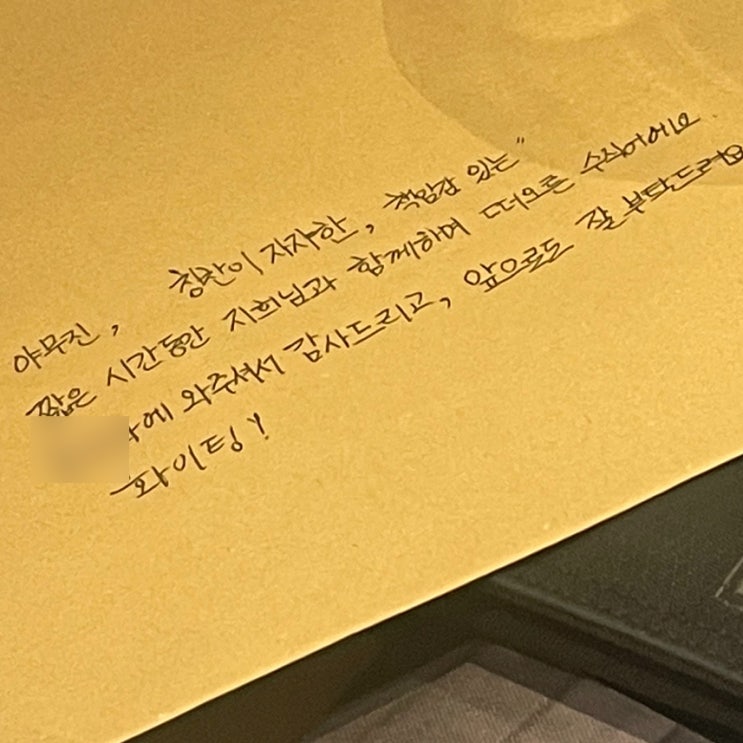 야무진, 칭찬이 자자한, 책임감 있는"
짧은 시간동안 지희님과 함께하며 떠오른 수식어에요.
에 와주셔서 감사드리고, 앞으로도 잘 부탁드려요
화이팅!